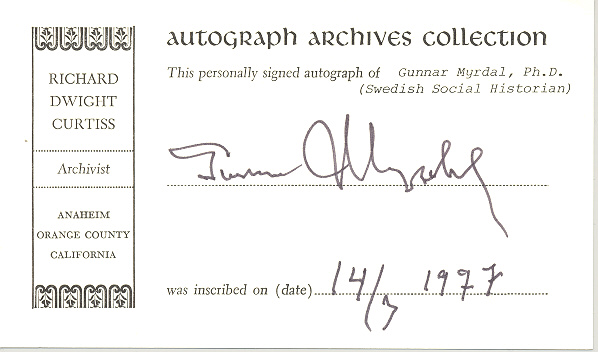 RICHARD
DWIGHT
CURTISS
Archivist
ANAHEIM
ORANGE COUNTY
CALIFORNIA
AUTOGRAPH ARCHIVES COLLECTION
This personally signed autograph of Gunnar Myrdal, Ph.D.
(Swedish Social Historian)
Gunnar Myrdal
was inscribed on (date) 14/3 1977